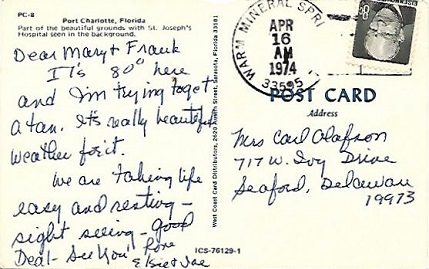 PC-8
Port Charlotte, Florida
Part of the beautiful grounds with St. Joseph's
Hospital seen in the background.
Dear Mary & Frank
It's 80° here
and I'm trying to get
a tan. It's really beautiful
weather for it.
We are taking life
easy and resting -
sight seeing - good
Deal - See You Love
Elsie & Joe
West Coast Card Distributors, Sarasota, Florida 33581
ICS-76129-1
WARM MINERAL SPRI
APR
16
AM
1974
33595
8c
POST CARD
Address
Mrs Carl Olafson
717 W. Ivy Drive
Seaford, Delaware
19973